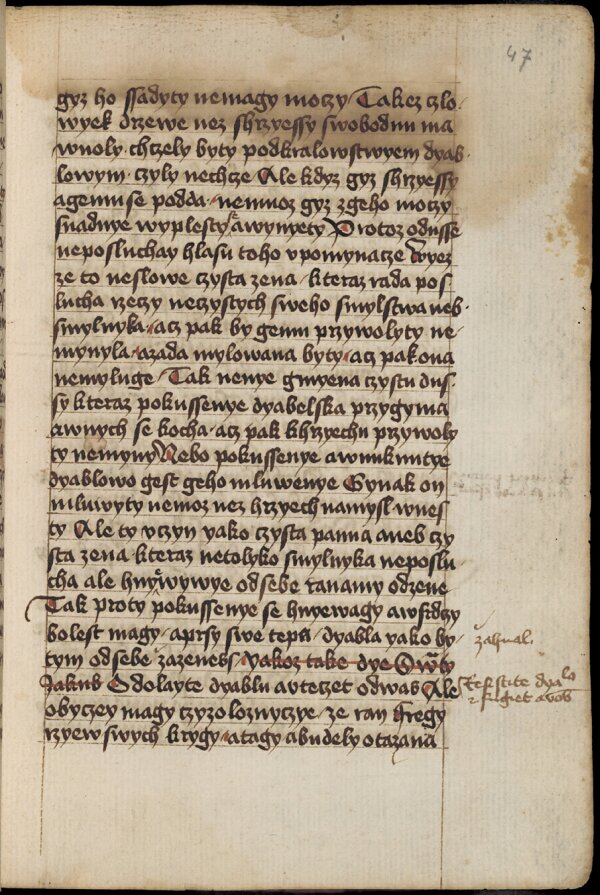 47
gyz ho ssadyty nemagy moczy Takez czlo
wyek drzewe nez shrzyessy swobodnu ma
wnoly chczely byty podkralowstwyem dyab
lowym czyly nechcze Ale kdyz gyz shrzyessy
agemu se podda nemnoz gyz zgeho moczy
snadnye wyplesty awynyety Protoz odusse
neposluchay hlasu toho vpomynacze Wyez
ze to neslowe czysta zena kteraz rada pos
lucha rzeczy neczystych sweho smylstwa neb
smylnyka acz pak by gemu przywolyty ne
mynyla azada mylowana byty acz pak ona
nemyluge Tak nenye gmyena czystu dus
sy kteraz pokussenye dyabelska przygyma
awnych se kocha acz pak khrzyechu przywoly
ty nemyny Nebo pokussenye awnuknutye
dyablowo gest geho mluwenye Gynak on
mluwyty nemoz nez hrzyech namysl wnes
ty Ale ty vczyn yako czysta panna aneb czy
sta zena kteraz netolyko smylnyka neposlu
cha ale hnyewywye odsebe ranamy odzene
Tak proty pokussenye se hnyewagy awsrdczy
bolest magy aprsy swe tepu dyabla yako by
tym odsebe zazenebs yakoz take dye Swaty
Jakub Odolayte dyablu avteczet odwas Ale
obyczey magy czyzoloznyczye ze ran kregy
rzyew swych krygy atagy abudely otazana
zahnal.
Resistite dyalo
et fugiet a vob